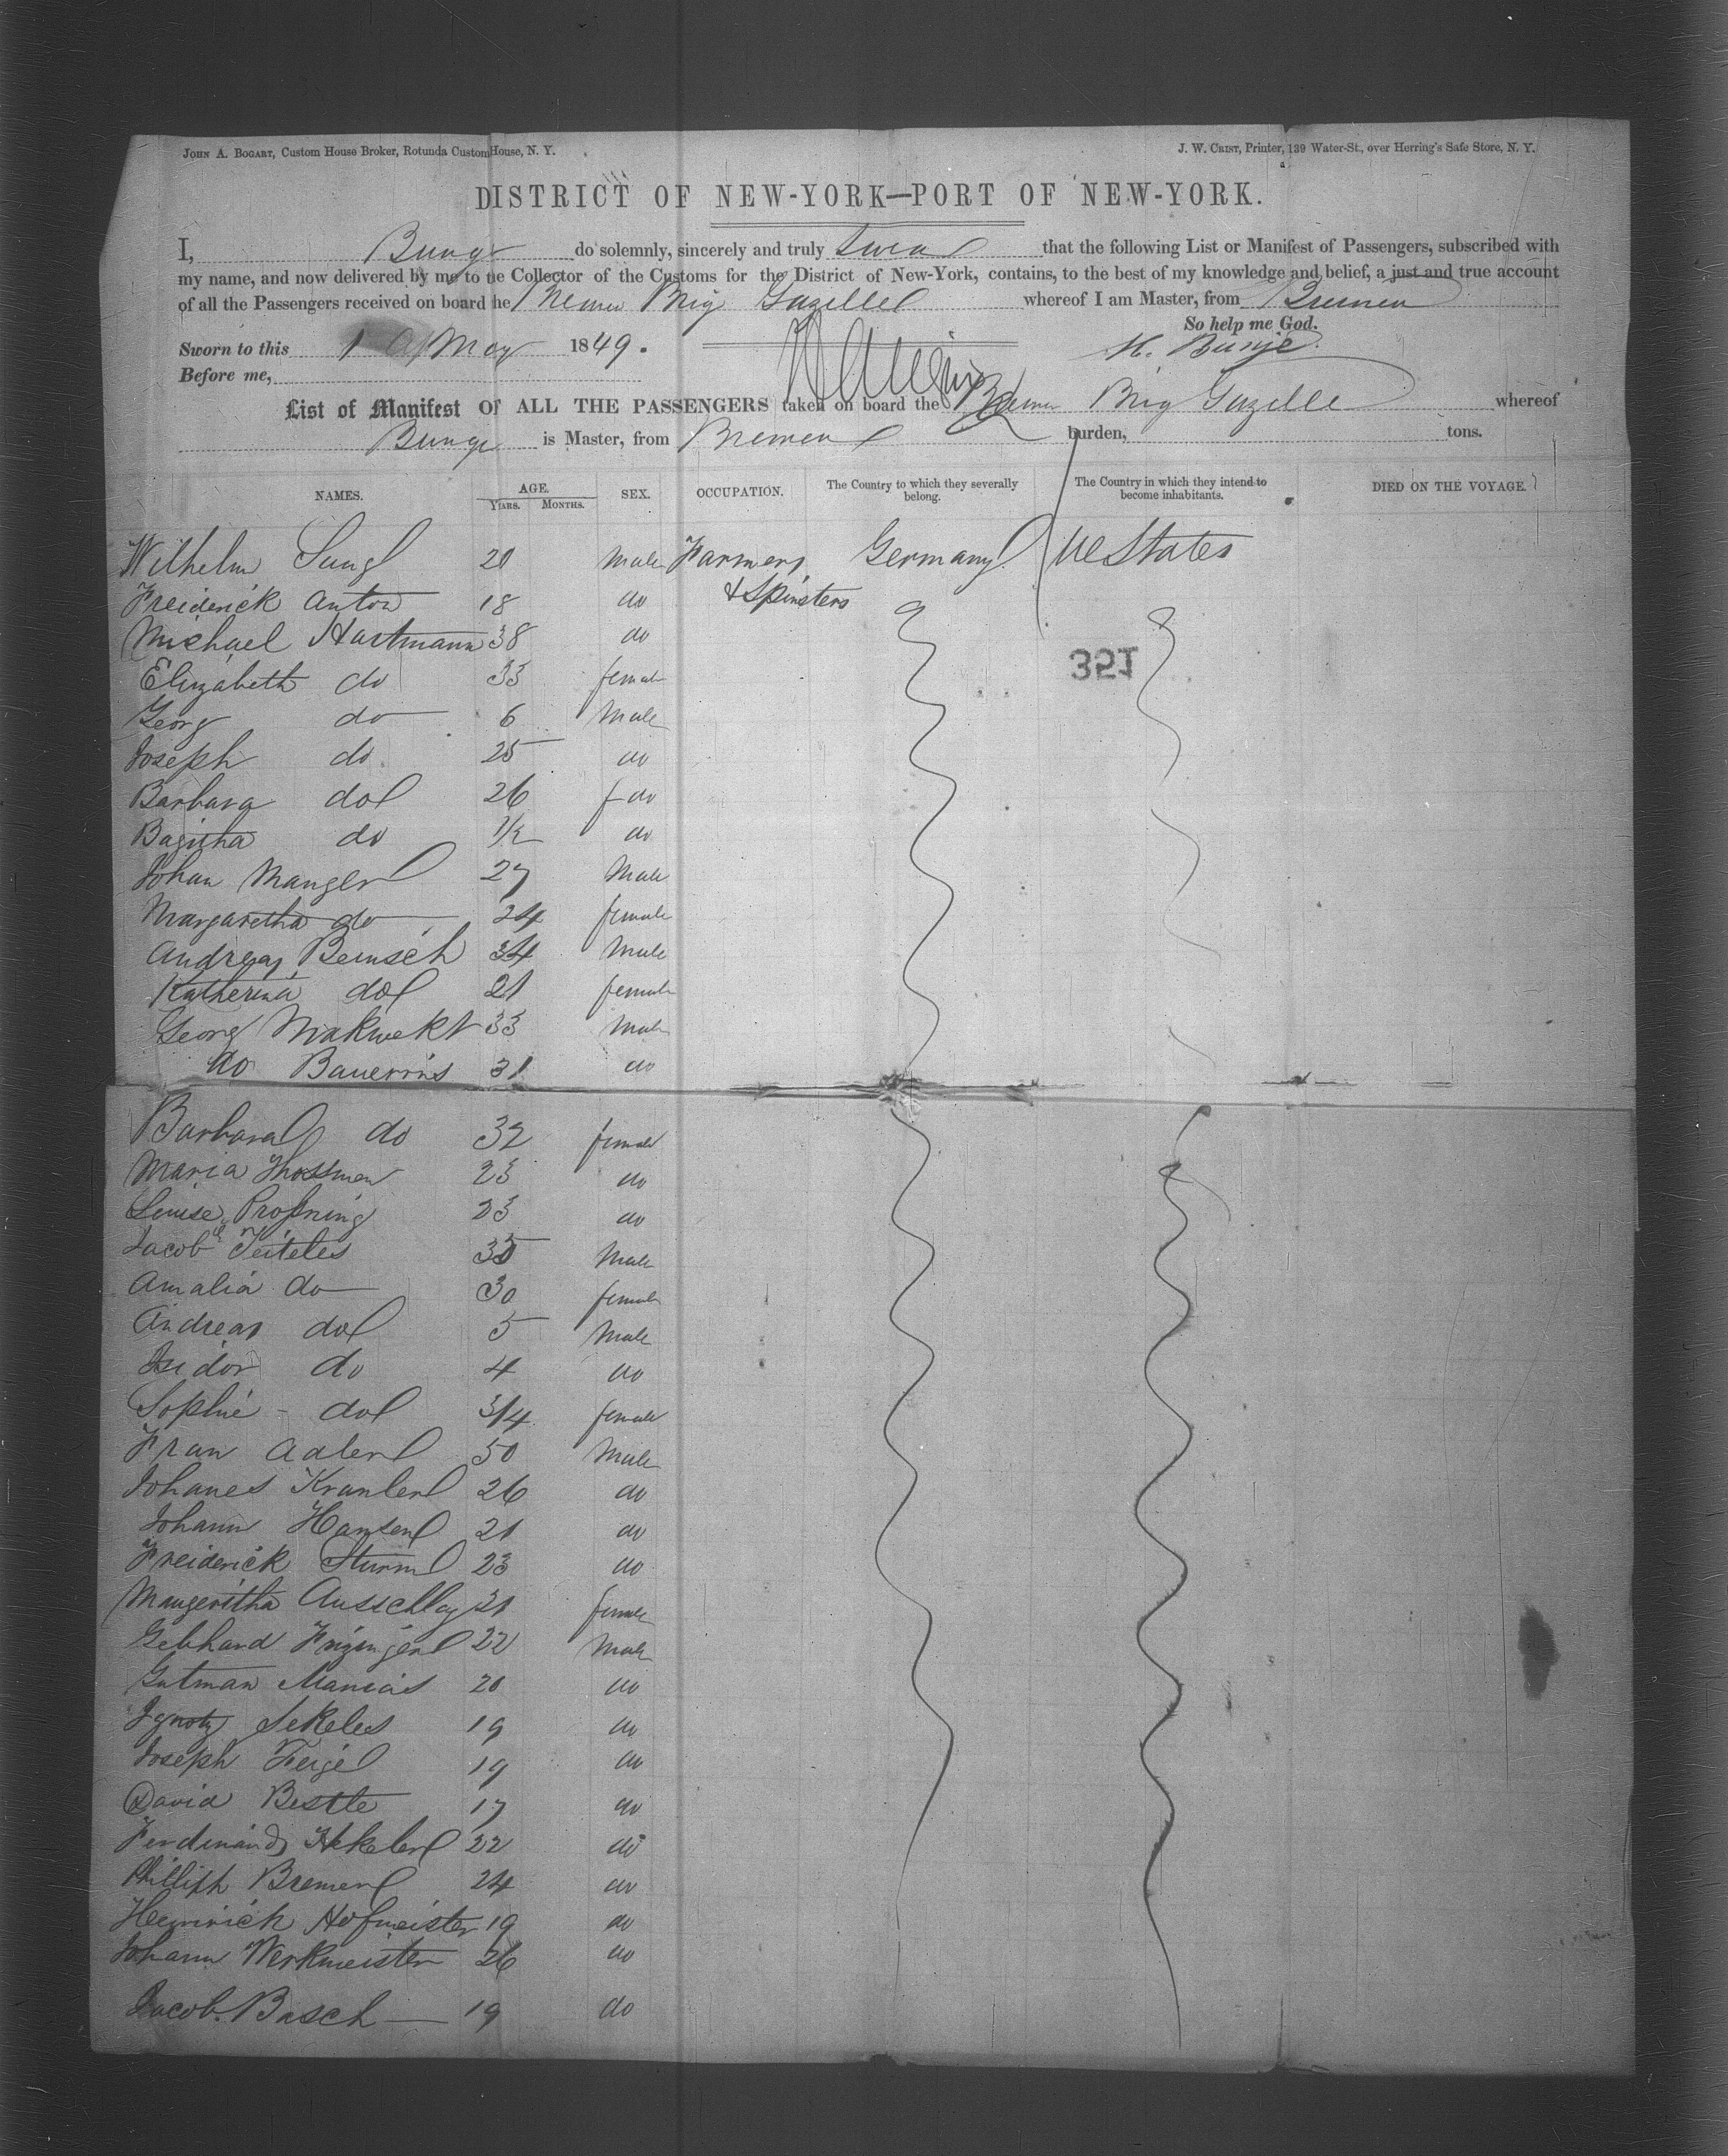 JOHN A. BOGART, Custom House Broker, Rotunda Custom House, N. Y.
J. W. CRIST, Printer, 139 Water-St., over Herring's Safe Store, N. Y.
DISTRICT OF NEW-YORK—PORT OF NEW-YORK.
I, Bunge do solemnly, sincerely and truly Swear that the following List or Manifest of Passengers, subscribed with
my name, and now delivered by me to the Collector of the Customs for the District of New-York, contains, to the best of my knowledge and belief, a just and true account
of all the Passengers received on board the Bremen Brig Gazelle whereof I am Master, from Bremen
So help me God.
Sworn to this 1 May 1849.
H. Bunje
Before me,
List of Manifest OF ALL THE PASSENGERS taken on board the Bremen Brig Gazelle whereof
Bunge is Master, from Bremen burden, tons.
NAMES. AGE. SEX. OCCUPATION. The Country to which they severally belong. The Country in which they intend to become inhabitants. DIED ON THE VOYAGE.
YEARS. MONTHS.
Wilhelm 20 Male Farmers Germany U States
Freiderick Anton 18 do & Spinsters
Michael Hartmann 38 do
351
Elizabeth do 33 female
Georg do 6 Male
Joseph do 25 do
Barbara do 26 f do
do 1/2 do
Johan Manger 27 Male
Margaretha do 24 female
Andreas Bensch 34 Male
Katherina do 21 female
Georg 33 Male
do 31 do
Barbara do 32 female
Maria 23 do
Louise 23 do
Jacob Teiteles 35 Male
Amalia do 30 female
Andreas do 5 Male
Isidor do 4 do
Sophie - do 3/4 female
Fran Adler 50 Male
Johanes Kranler 26 do
Johann Hansen 21 do
Freiderick Sturm 23 do
Margeritha Ausschlag 21 female
Gebhard 22 Male
Gutman 20 do
Ignatz Sekeles 19 do
Joseph Feigel 19 do
David Bestle 17 do
Ferdinand Hekeler 22 do
Philliph Bremer 24 do
Heinrich Hofmeister 19 do
Johann Werkmeister 26 do
Jacob Basch 19 do